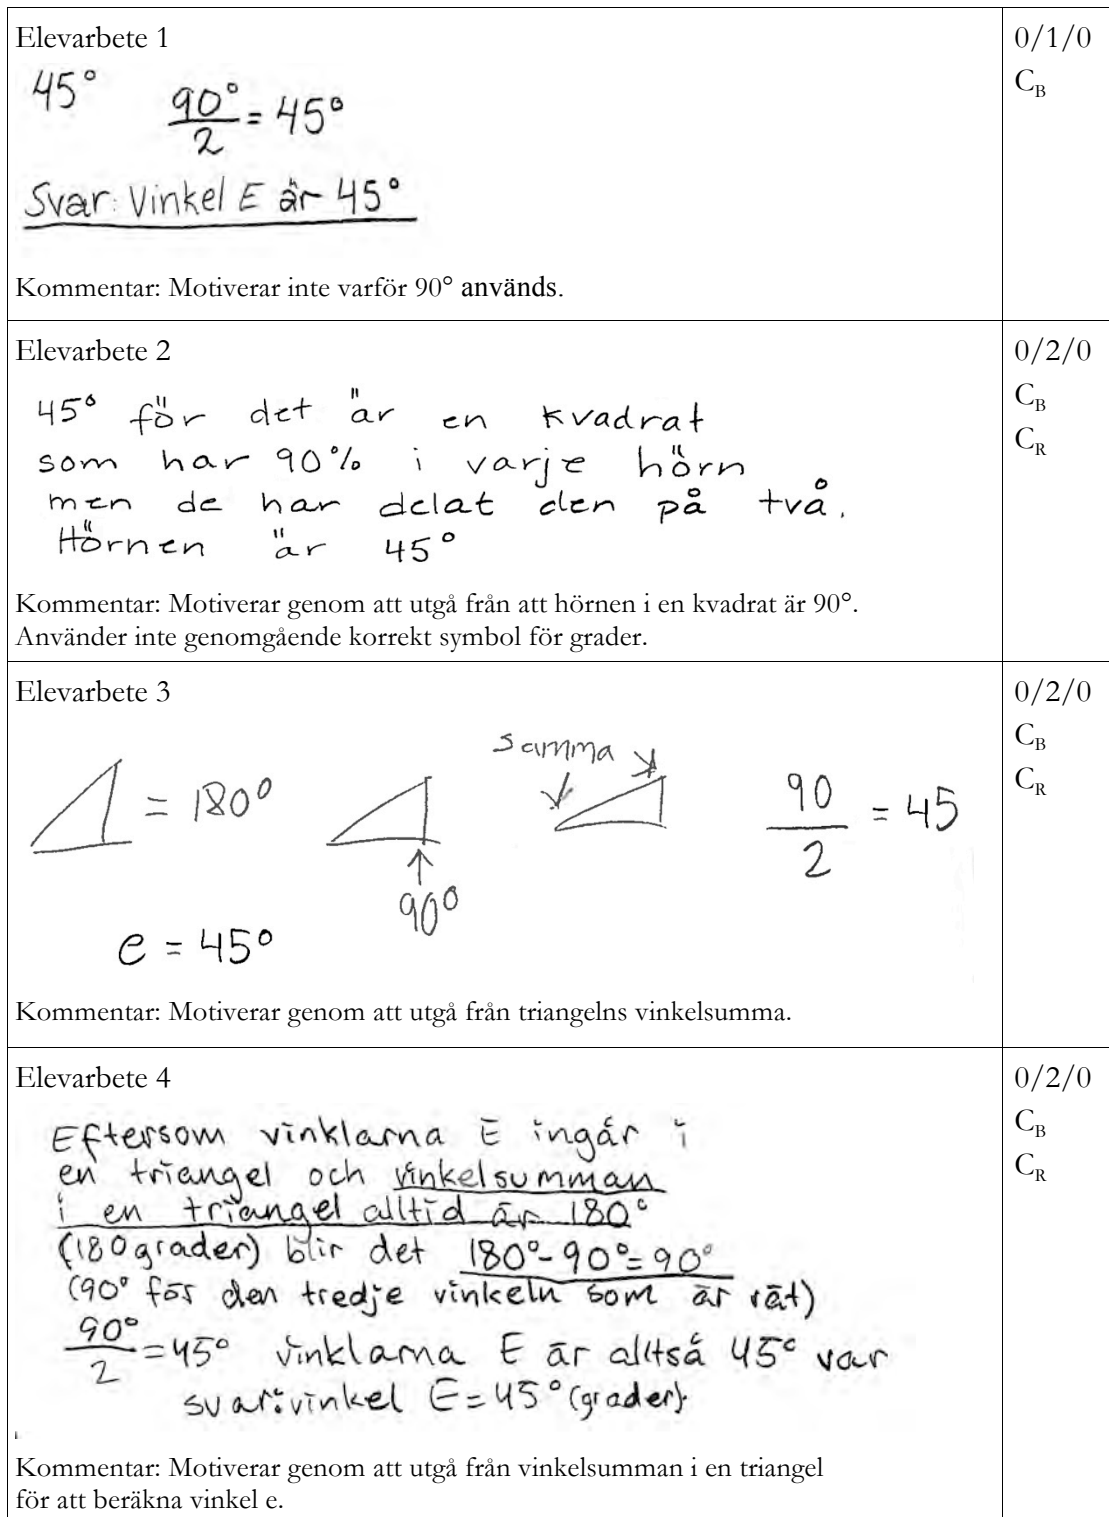 Elevarbete 1
0/1/0
C_B
45°
90°/2 = 45°
Svar: Vinkel E är 45°
Kommentar: Motiverar inte varför 90° används.
Elevarbete 2
0/2/0
C_B
C_R
45° för det är en kvadrat
som har 90% i varje hörn
men de har delat den på två.
Hörnen är 45°
Kommentar: Motiverar genom att utgå från att hörnen i en kvadrat är 90°.
Använder inte genomgående korrekt symbol för grader.
Elevarbete 3
0/2/0
C_B
C_R
= 180°
90°
samma
90/2 = 45
e = 45°
Kommentar: Motiverar genom att utgå från triangelns vinkelsumma.
Elevarbete 4
0/2/0
C_B
C_R
Eftersom vinklarna E ingår i
en triangel och vinkelsumman
i en triangel alltid är 180°
(180 grader) blir det 180°-90°=90°
(90° för den tredje vinkeln som är rät)
90°/2 = 45° vinklarna E är alltså 45° var
svar: vinkel E = 45° (grader).
Kommentar: Motiverar genom att utgå från vinkelsumman i en triangel
för att beräkna vinkel e.